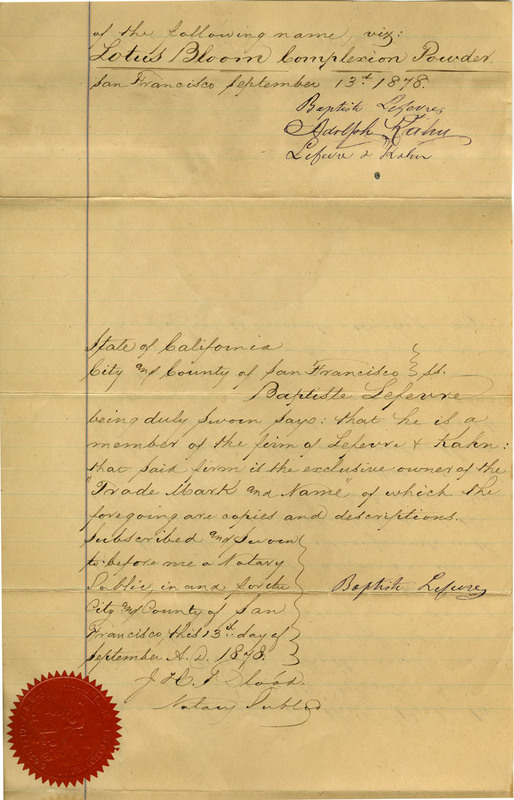 of the following name, viz:
Lotus Bloom Complexion Powder.
San Francisco September 13th 1878.
Baptiste Lefevre,
Adolph Kahn
Lefevre & Kahn
State of California
City and County of San Francisco } ss.
Baptiste Lefevre
being duly sworn says: that he is a
member of the firm of Lefevre & Kahn:
that said firm is the exclusive owner of the
"Trade Mark and Name" of which the
foregoing are copies and descriptions.
Subscribed and sworn
to before me a Notary
Public, in and for the
City and County of San
Francisco, this 13th day of
September A.D. 1878.
Baptiste Lefevre
J. H.
Notary Public